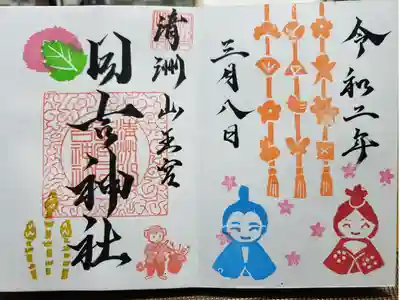 令和二年
三月八日
清洲山王宮
日吉神社